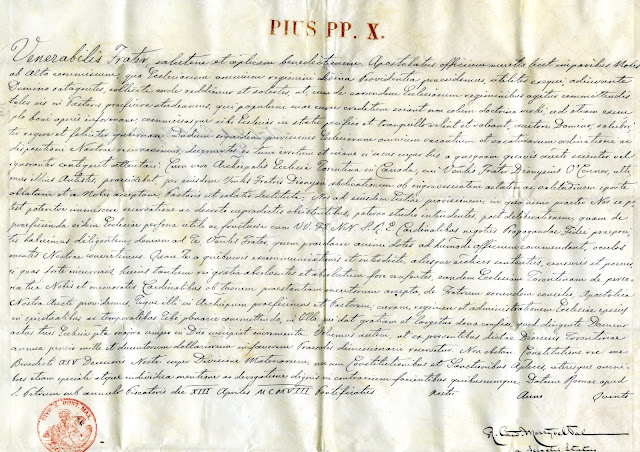 PIUS PP. X.
Venerabilis Frater salutem et aplicam benedictionem Apostolatus officium meritis licet imparibus Nobis
ab alto commissum, quo Ecclesiarum omnium regimini divina Providentia praesidemus, utiliter exequi, adiuvante
Domino satagentes, solliciti corde reddimur et solertes, ut, cum de earundem Ecclesiarum regiminibus agitur committendis
tales eis in Pastores praeficere studeamus, qui populum suae curae creditum sciant non solum doctrina verbi, sed etiam exem
plo boni operis informare, commissasque sibi Ecclesias in statu pacifico et tranquillo velint et valeant, auctore Domino, salubri
ter regere et feliciter gubernare. Dudum siquidem provisiones Ecclesiarum omnium vacantium et vacaturarum ordinationi ac
dispositioni Nostrae reservavimus, decernentes ex tunc irritum et inane si secus super his a quoquam quavis auctte scienter vel
ignoranter contigerit attentari. Cum vero Archiepalis Ecclesia Torontina in Canada, cui Venlis Frater Dionysius O'Connor, ulti
mus illius Antistes, praesidebat, per eiusdem Venlis Fratris Dionysii abdicationem ob ingravescentem aetatem ac valetudinem sponte
oblatam et a Nobis acceptam Pastoris sit solatio destituta; Nos ad eiusdem Ecclae provisionem, in qua nemo praeter Nos se po
test potuitve immiscere, reservatione ac decreto supradictis obsistentibus, paterno studio intendentes, post deliberationem, quam de
praeficienda eidem Ecclesiae persona utili ac fructuosa cum VV. FF. NN. S.R.E. Cardinalibus negotiis Propagandae Fidei praepositis
habuimus diligentem, demum ad Te Venlis Frater, quem praeclarae animi dotes ad huiusmodi officium commendant, oculos
mentis Nostrae convertimus. Quare Te a quibusvis excommunicationis et interdicti, aliisque eccticis sententiis, censuris et poenis
si quas forte incurreris huius tantum rei gratia absolventes et absolutum fore censentes, eandem Ecclesiam Torontinam de perso
na tua Nobis et memoratis Cardinalibus ob tuorum praestantiam meritorum accepta, de Fratrum eorundem consilio, Apostolica
Nostra Auctte providemus, Teque illi in Archiepum praeficimus et Pastorem, curam, regimen et administrationem Ecclesiae ipsius
in spiritualibus ac temporalibus Tibi plenarie committendo, in Illo, qui dat gratias et largitur dona confisi, quod dirigente Domino
actus tuos Ecclesia pta maiora semper in Dno suscipiet incrementa. Volumus autem, ut ex proventibus istius Dioecesis Torontinae
annua pensio mille et ducentorum dollariorum in favorem Praesulis dimissionarii reservetur. Non obstan. Constitutione rec. me.
Benedicti XIV Decessoris Nostri super Divisione Materiarum, necnon Constitutionibus et Sanctionibus Aplicis, ceterisque omni
bus etiam speciali atque individua mentione ac derogatione dignis in contrarium facientibus quibuscumque. Datum Romae apud
S. Petrum sub annulo Piscatoris die XIII Aprilis MCMVIII Pontificatus Nostri Anno Quinto
R. Card. Merry del Val
a Secretis Status